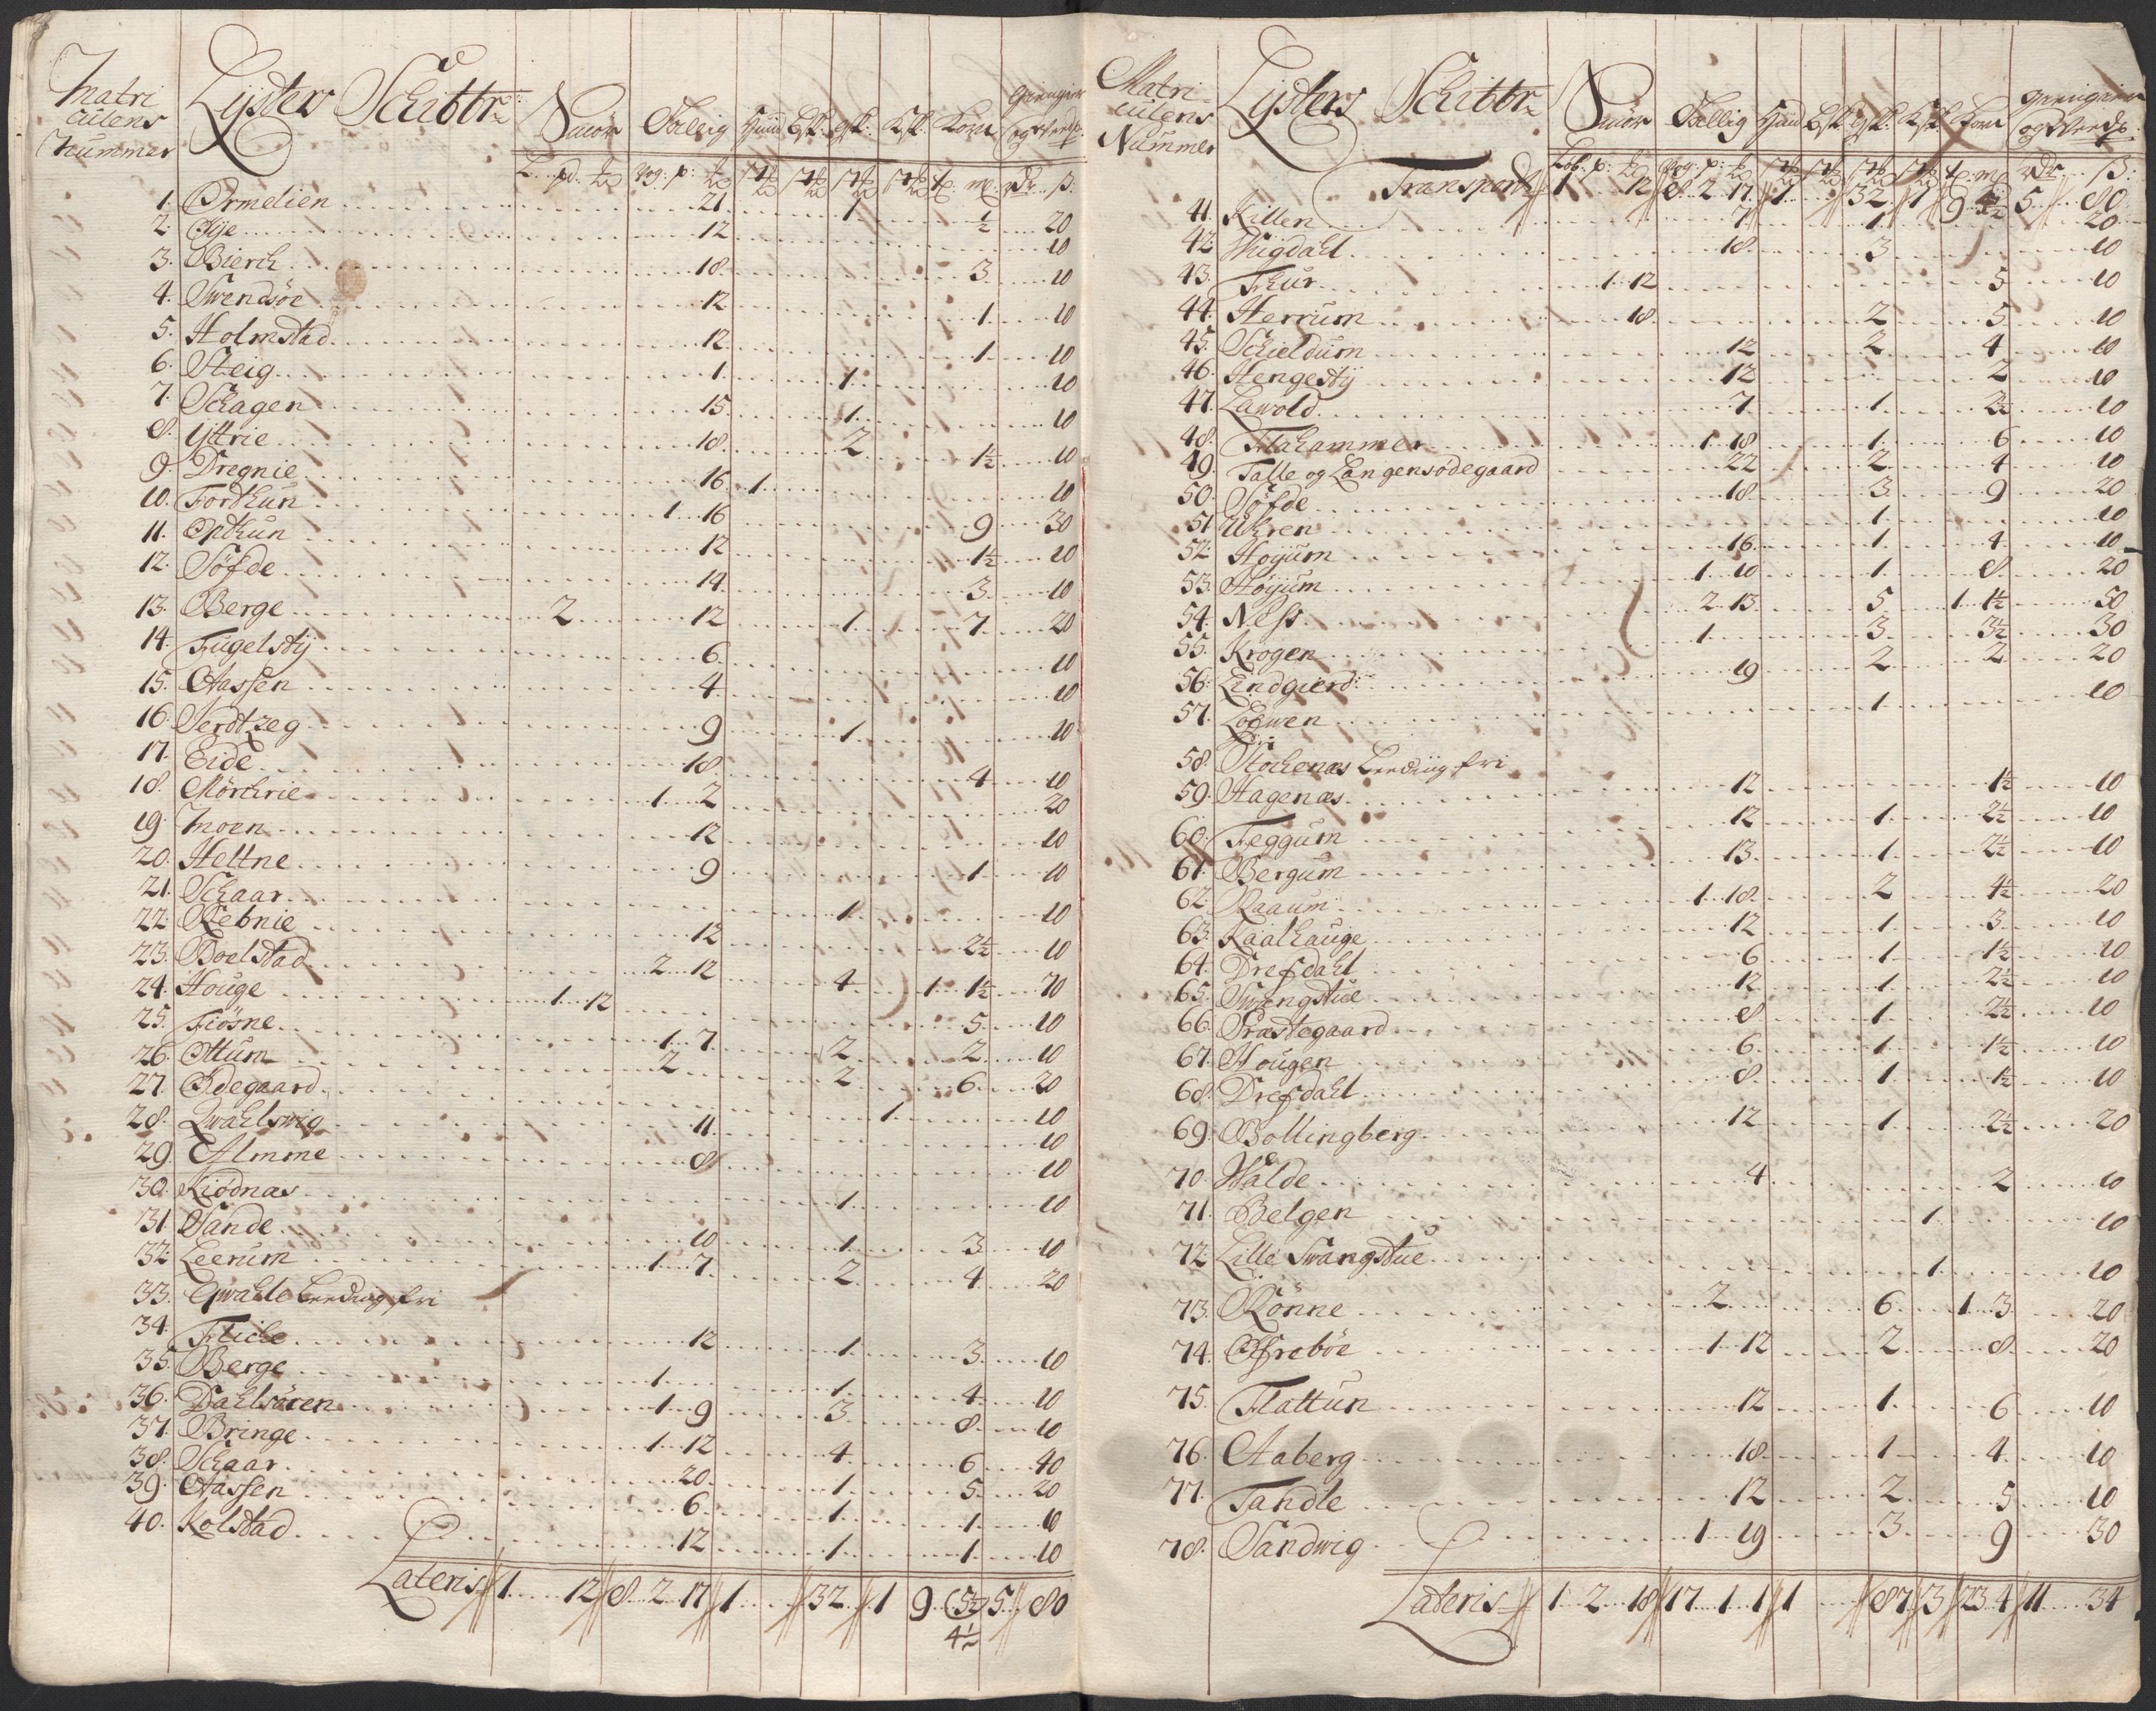 Matri
culens
Nummer
Lysters Schibbr:
Smör Tallig Huud Bsk: Gsk: Ksk: Korn Giengier og Brendsp:
L. pd. ℔ Vog: p: ℔ ... t: m: Rdr ß:
1. Ormelien 21 1 ½ 20
2. Øye 12 10
3. Bierch 18 3 10
4. Svendsøe 12 1 10
5. Holmstad 12 1 10
6. Steig 1 1 10
7. Schagen 15 1 10
8. Yttrie 18 2 1½ 10
9. Dregnie 16 1 10
10. Fordthun 1 16 9 30
11. Opthun 12 1½ 10
12. Söfde 14 3 10
13. Berge 2 12 1 7 20
14. Fugelsty 6 10
15. Aassen 4 10
16. Serdtzeg 9 1 10
17. Eide 18 4 10
18. Mörchrie 1 2 20
19. Moen 12 10
20. Heltne 9 1 10
21. Schaar 1 10
22. Rebnie 12 2½ 10
23. Boelstad 2 12 4 1 1½ 70
24. Houge 1 12 5 10
25. Fiösne 1 7 2 2 10
26. Ottum 2 2 6 20
27. Ødegaard 1 10
28. Qvahlsvig 11 10
29. Almme 8 10
30. Kiödnas 1 10
31. Sande 10 1 3 10
32. Leerum 1 7 2 4 20
33. Qwahle Leeding fri
34. Fliche 12 1 3 10
35. Berge 1 1 4 10
36. Dahlsören 1 9 3 8 10
37. Bringe 1 12 4 6 40
38. Schaar 20 1 5 20
39. Aassen 6 1 1 10
40. Kolstad 12 1 1 10
Lateris 1 12 8 2 17 1 32 1 9 (5½ 5 80
4½
Matri
culens
Nummer
Lysters Schibbr:
Smör Tallig Huud Bsk: Gsk: Ksk: Korn Giengier og Brendsp:
Lob: p: ℔ Vog: p: ℔ ... t: m: Rdr ß:
Transport 1 12 8 2 17 1 32 1 9 4½ 5 80
41. Killen 7 1 20
42. Wigdahl 18 3 10
43. Fhur 1 12 5 10
44. Herrum 18 2 5 10
45. Schieldum 12 2 4 10
46. Hengesty 12 2 10
47. Lawold 7 1 2½ 10
48. Flahammer 1 18 1 6 10
49. Talle og Langensødegaard 22 2 4 10
50. Söfde 18 3 9 20
51. Uhren 1 10
52. Hoyum 16 1 4 10
53. Höyum 1 10 1 8 20
54. Ness 2 13 5 1 1½ 50
55. Krogen 1 3 3½ 30
56. Lindgierd: 19 2 2 20
57. Loewen 1 10
58. Stochenas Leeding fri
59. Hagenæs 12 1½ 10
60. Feggum 12 1 2½ 10
61. Bergum 13 1 2½ 10
62. Raaum 1 18 2 4½ 20
63. Kaalhauge 12 1 3 10
64. Drefdahl 6 1 1½ 10
65. Swangstue 12 1 2½ 10
66. Præstegaard 8 1 2½ 10
67. Hougen 6 1 1½ 10
68. Drefdahl 8 1 1½ 10
69. Bollingberg 12 1 2½ 20
70. Walde 4 2 10
71. Belgen 1 10
72. Lille Swangstue 1 10
73. Rönne 2 6 1 3 20
74. Ofreböe 1 12 2 8 20
75. Flattun 12 1 6 10
76. Aaberg 18 1 4 10
77. Tandle 12 2 5 10
78. Sandwig 1 19 3 9 30
Lateris 1 2 18 17 1 1 1 87 3 23 4 11 34